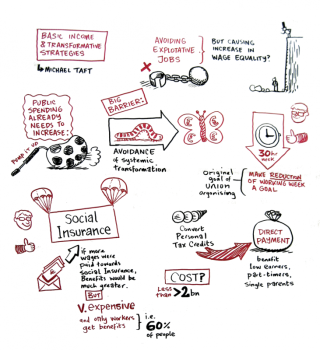 BASIC INCOME
& TRANSFORMATIVE
STRATEGIES
↳ MICHAEL TAFT
AVOIDING
EXPLOITATIVE
JOBS
BUT CAUSING
INCREASE IN
WAGE EQUALITY?
PUBLIC
SPENDING
ALREADY
NEEDS TO
INCREASE:
PUMP IT UP
BIG
BARRIER:
AVOIDANCE
of systemic
transformation
30hr
week
Original
goal of
UNION
organising
MAKE REDUCTION
OF WORKING WEEK
A GOAL
Social
Insurance
if more
wages were
paid towards
social Insurance,
Benefits would be
much greater.
BUT
V. expensive
and only workers
get benefits
i.e.
60%
of people
Convert
Personal
Tax Credits
DIRECT
PAYMENT
benefit
low earners,
part-timers,
single parents
COST?
Less
than >2bn